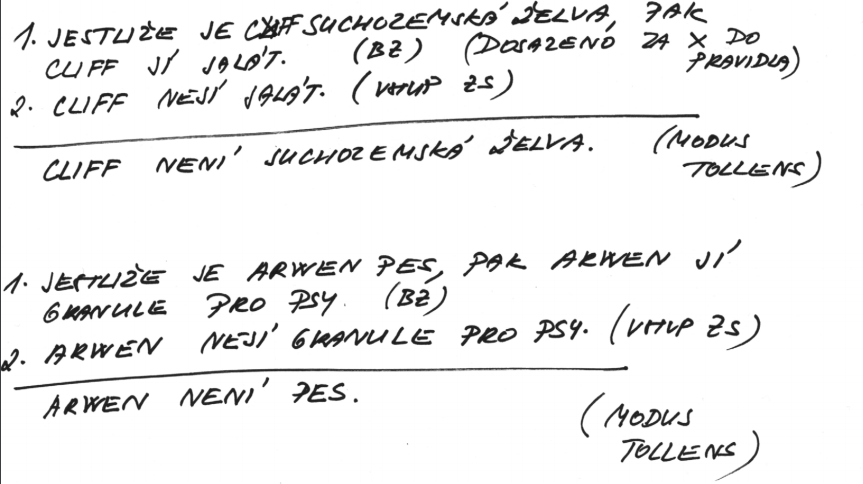 1. JESTLIŽE JE CLIFF SUCHOZEMSKÁ ŽELVA, PAK
CLIFF JÍ SALÁT. (BZ) (DOSAZENO ZA X DO
PRAVIDLA)
2. CLIFF NEJÍ SALÁT. (VSTUP ZS)
CLIFF NENÍ SUCHOZEMSKÁ ŽELVA. (MODUS
TOLLENS)
1. JESTLIŽE JE ARWEN PES, PAK ARWEN JÍ
GRANULE PRO PSY. (BZ)
2. ARWEN NEJÍ GRANULE PRO PSY. (VSTUP ZS)
ARWEN NENÍ PES.
(MODUS
TOLLENS)